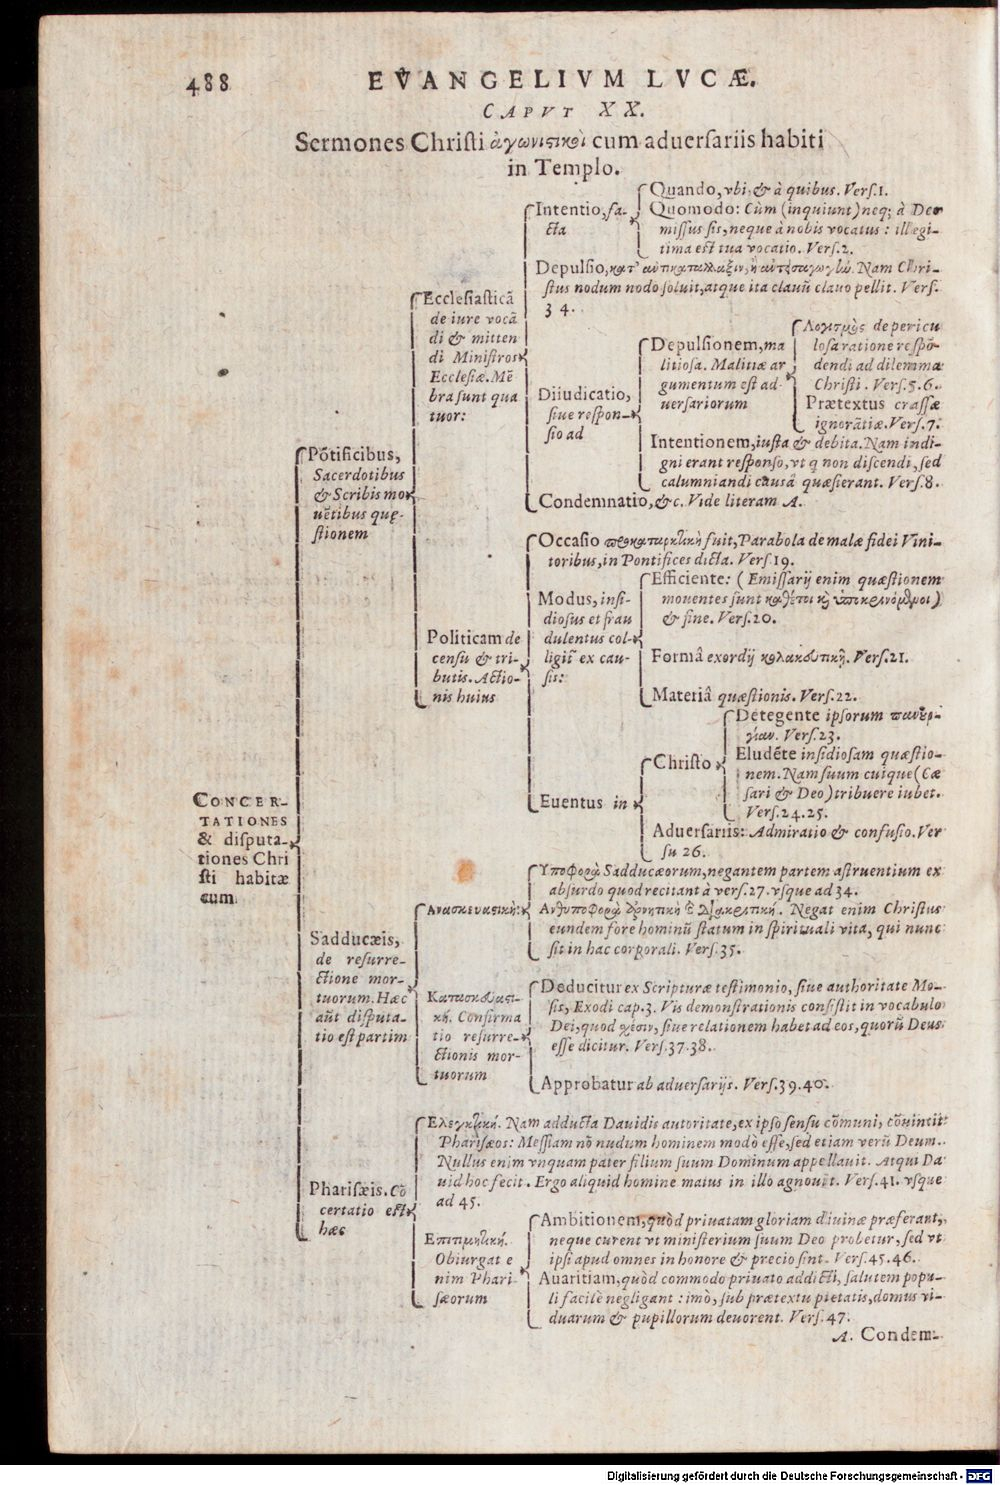 488 EVANGELIVM LVCÆ.
CAPVT XX.
Sermones Christi ἀγωνιστικοὶ cum aduersariis habiti
in Templo.
CONCER-
TATIONES
& disputa-
tiones Chri
sti habitæ
cum
Põtificibus,
Sacerdotibus
& Scribis mo
uẽtibus quę-
stionem
Ecclesiasticã
de iure vocã
di & mitten
di Ministros
Ecclesiæ. Mẽ
bra sunt qua
tuor:
Intentio, fa-
cta
Quando, vbi, & à quibus. Vers.1.
Quomodo: Cùm (inquiunt) neq; à Deo
missus sis, neque à nobis vocatus: illegi-
tima est tua vocatio. Vers.2.
Depulsio, κατ' ἀντικατάλλαξιν, ἢ ἀντεισαγωγὴν. Nam Chri-
stus nodum nodo soluit, atque ita clauũ clauo pellit. Vers.
3 4.
Diiudicatio,
siue respon-
sio ad
Depulsionem, ma
litiosa. Malitiæ ar
gumentum est ad-
uersariorum
Λογισμὸς de pericu
losa ratione respõ-
dendi ad dilemma
Christi. Vers.5.6.
Prætextus crassæ
ignorãtiæ. Vers.7.
Intentionem, iusta & debita. Nam indi-
gni erant responso, vt q non discendi, sed
calumniandi causâ quæsierant. Vers.8.
Condemnatio, &c. Vide literam A.
Politicam de
censu & tri-
butis. Actio-
nis huius
Occasio προκαταρκτικὴ fuit, Parabola de malæ fidei Vini-
toribus, in Pontifices dicta. Vers.19.
Modus, insi-
diosus et frau
dulentus col-
ligit̃ ex cau-
sis:
Efficiente: (Emissarij enim quæstionem
mouentes sunt καθέτοι καὶ ὑποκρινόμενοι)
& fine. Vers.20.
Formâ exordij κολακευτικῇ. Vers.21.
Materiâ quæstionis. Vers.22.
Euentus in
Christo
Detegente ipsorum πανουρ-
γίαν. Vers.23.
Eludẽte insidiosam quæstio-
nem. Nam suum cuique (Cæ
sari & Deo) tribuere iubet.
Vers.24.25.
Aduersariis: Admiratio & confusio. Ver
su 26.
Sadducæis,
de resurre-
ctione mor-
tuorum. Hæc
aũt disputa-
tio est partim
Ανασκευαστική:
Υποφορᾷ Sadducæorum, negantem partem astruentium ex
absurdo quod recitant à vers.27. vsque ad 34.
Ανθυποφορᾷ ἀρνητικῇ & διακριτικῇ. Negat enim Christus
eundem fore hominũ statum in spirituali vita, qui nunc
sit in hac corporali. Vers.35.
Κατασκευαστι-
κή. Confirma
tio resurre-
ctionis mor-
tuorum
Deducitur ex Scripturæ testimonio, siue authoritate Mo-
sis, Exodi cap.3. Vis demonstrationis consistit in vocabulo
Dei, quod χέσιν, siue relationem habet ad eos, quorũ Deus
esse dicitur. Vers.37.38.
Approbatur ab aduersarijs. Vers.39.40.
Pharisæis. Cõ
certatio est
hæc
Ελεγκτική. Nam adducta Dauidis autoritate, ex ipso sensu cõmuni, cõuincit
Pharisæos: Messiam nõ nudum hominem modò esse, sed etiam verũ Deum.
Nullus enim vnquam pater filium suum Dominum appellauit. Atqui Da
uid hoc fecit. Ergo aliquid homine maius in illo agnouit. Vers.41. vsque
ad 45.
Επιτιμητική.
Obiurgat e
nim Phari-
sæorum
Ambitionem, quòd priuatam gloriam diuinæ præferant,
neque curent vt ministerium suum Deo probetur, sed vt
ipsi apud omnes in honore & precio sint. Vers.45.46.
Auaritiam, quòd commodo priuato addicti, salutem popu-
li facilè negligant: imò, sub prætextu pietatis, domus vi-
duarum & pupillorum deuorent. Vers.47.
A. Condem-
Digitalisierung gefördert durch die Deutsche Forschungsgemeinschaft - DFG